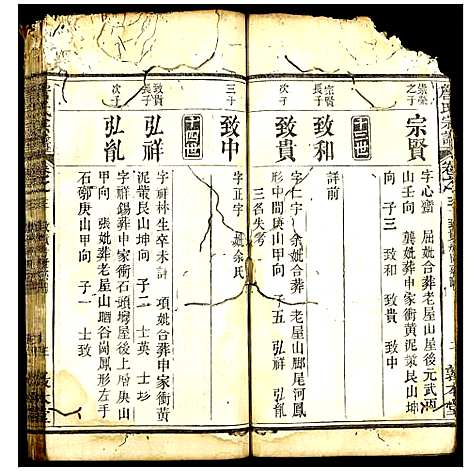 宗賢
字心齋 屈妣合葬老屋山屋後元武頂
山壬向 龔妣葬申家衝黃泥業艮山坤
向 子三 致和 致貴 致中
十三世
宗賢長子
致和
詳前
次子
致貴
字仁宇 余妣合葬 老屋山尾河鳳
形中間庚山甲向 子五 弘祥 弘胤
三名失考
三子
致中
字正宇 妣余氏
十四世
致貴長子
弘祥
字祥林生卒未詳 項妣合葬申家衝黃
泥業艮山坤向 子二 士英 士珍
次子
弘胤
字祥錫葬申家衝石頭塆屋後上層庚山
甲向 張妣葬老屋山堖谷崗鳳形左手
石磡庚山甲向 子一 士致
敦本堂